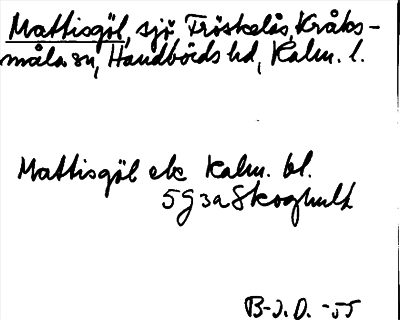 Mattisgöl, sjö, Fröskelås, Kråks-
måla sn, Handbörds hd, Kalm. l.
Mattisgöl ek Kalm. bl.
5 G 3a Skoghult
B-J.O. -55